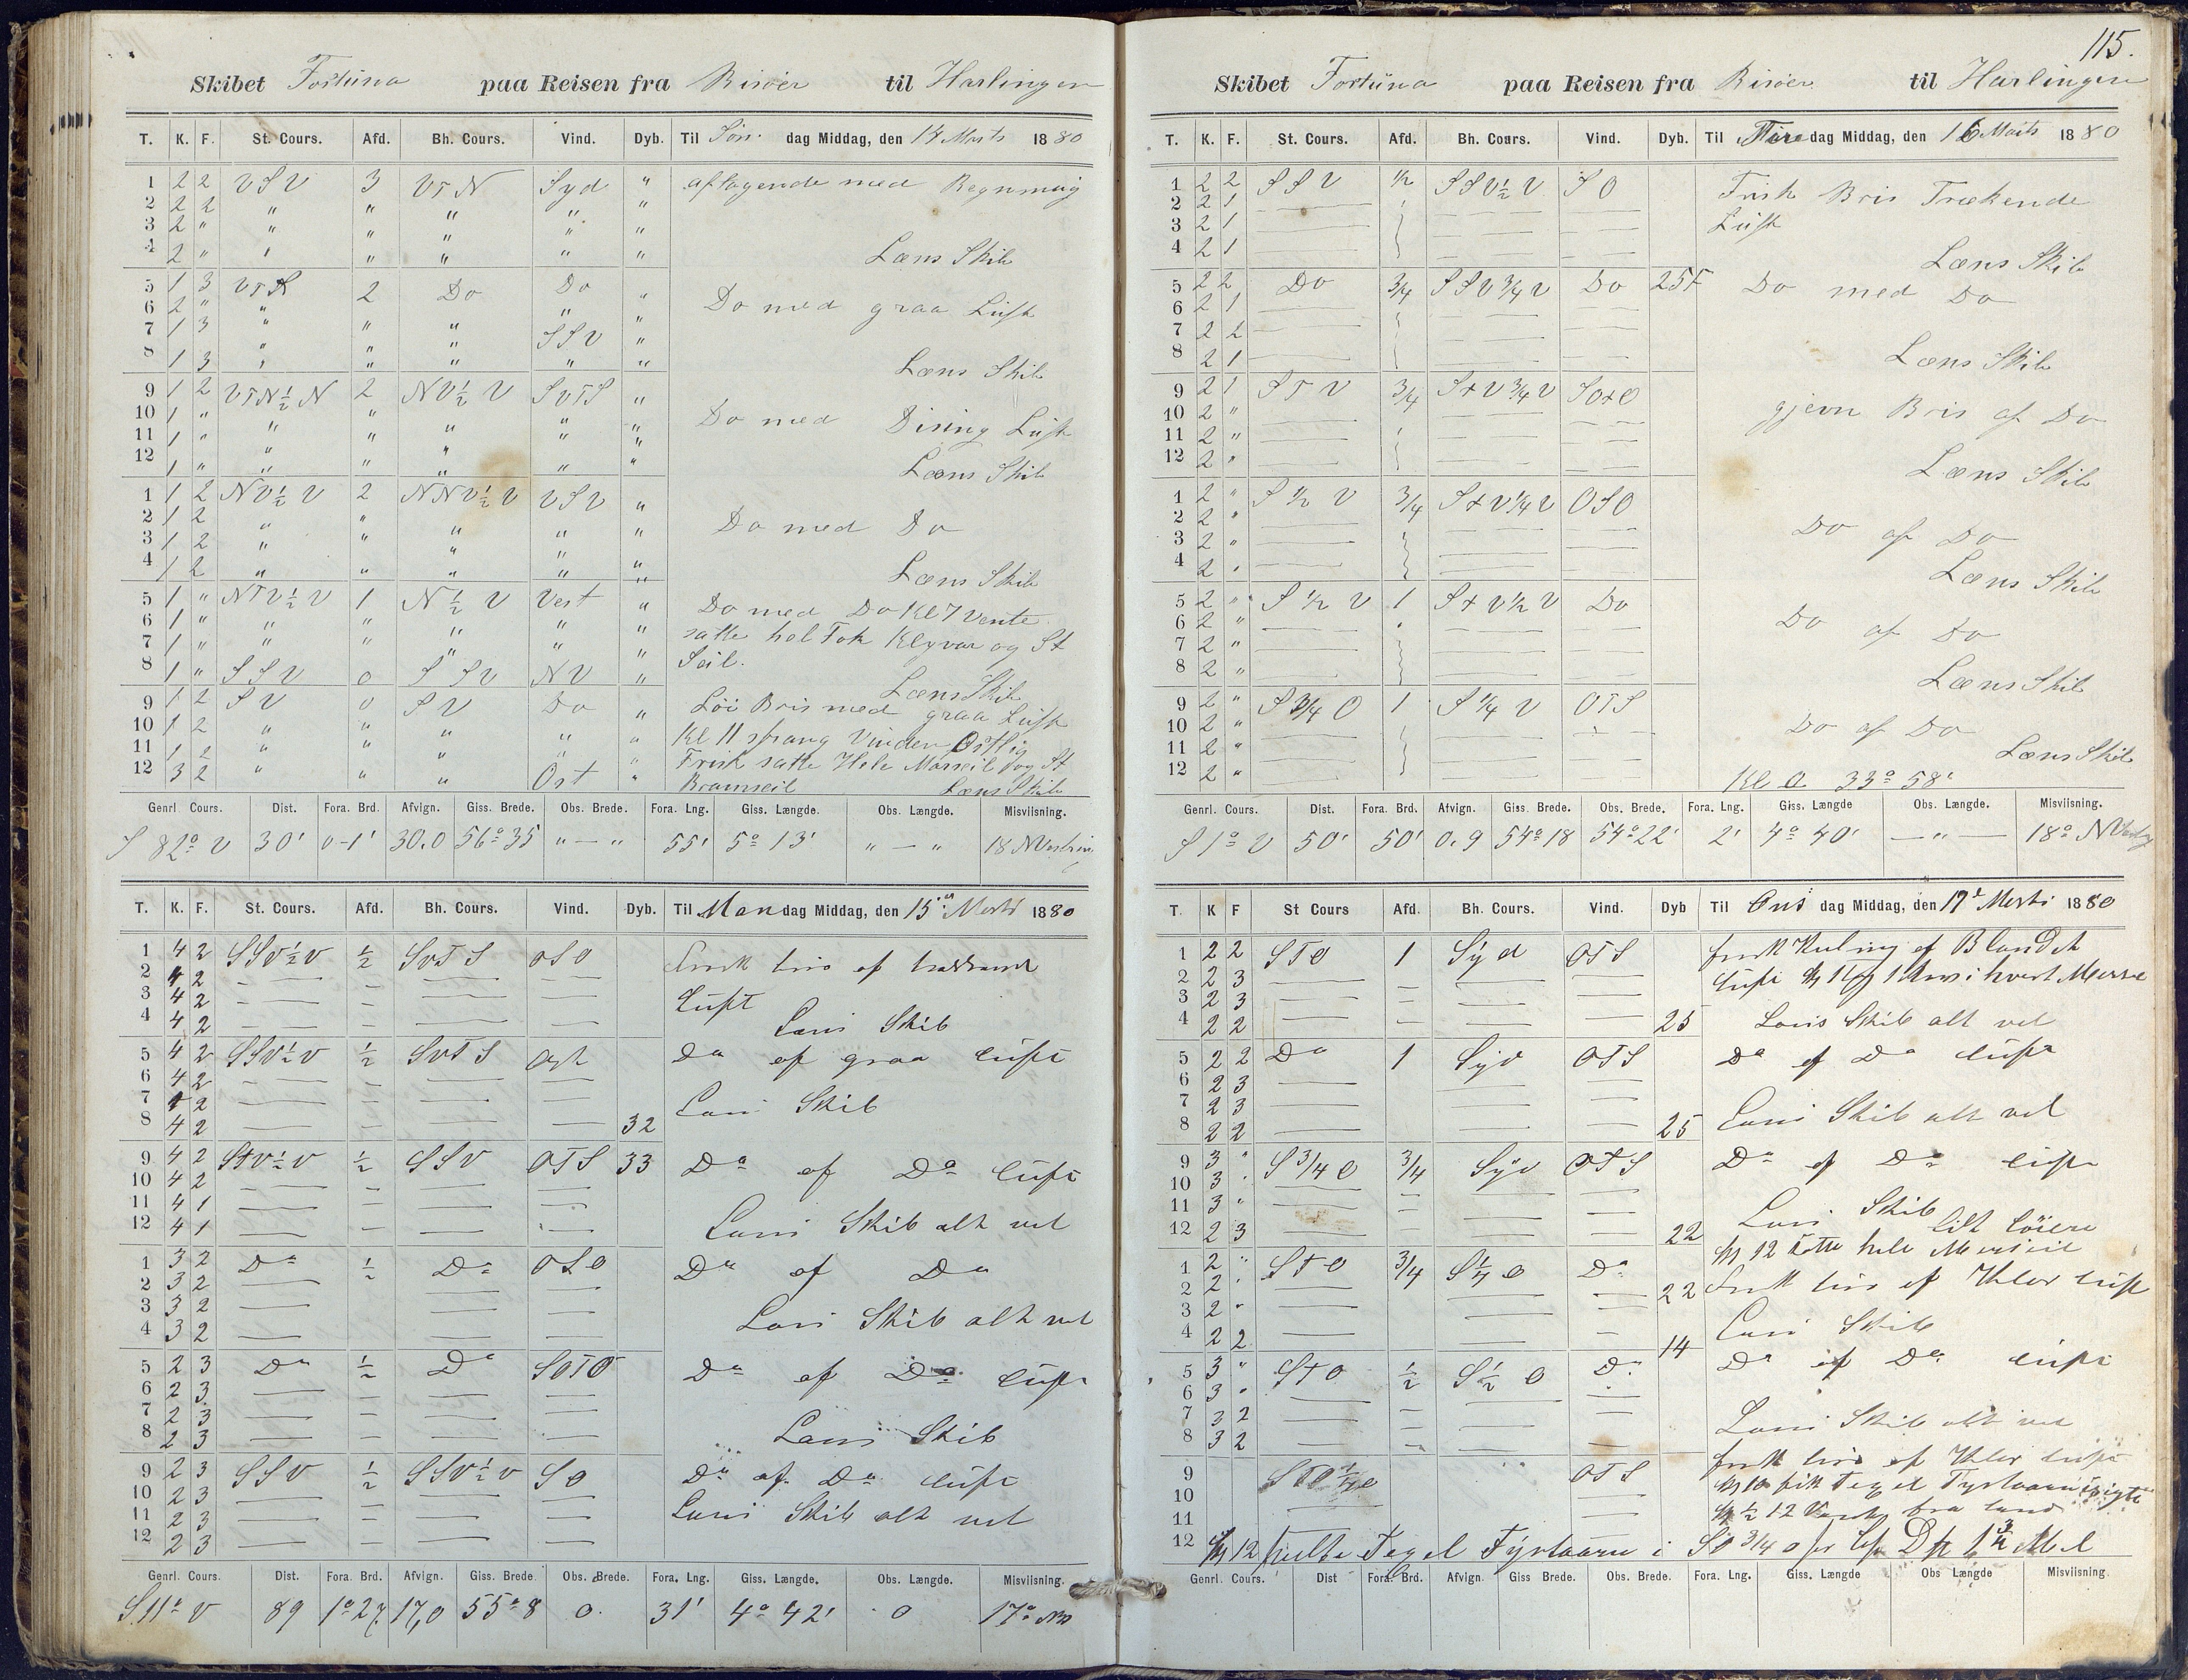 115.
Skibet Fortuna paa Reisen fra Risöer til Harlingen
T. K. F. St. Cours. Afd. Bh. Cours. Vind. Dyb. Til Søn dag Middag, den 14 Marts 1880
1 2 2 VSV 3 VTN Syd " aftagende med Regnmuig
2 2 2 " " " " "
3 2 " " " " " "
4 2 " " " " " " Læns Skib
5 1 3 VTS 2 Do Do " Do med graa Luft
6 2 " " " " " "
7 1 3 " " " SSV "
8 1 3 " " " " " Læns Skib
9 1 2 VTN½N 2 NV½V SVTS " Do med Dising Luft
10 1 " " " " " "
11 1 " " " " " "
12 1 " " " " " " Læns Skib
1 1 2 NV½V 2 NNV½V VSV " Do med Do
2 1 2 " " " " "
3 1 2 " " " " "
4 1 2 " " " " " Læns Skib
5 1 " NTV½V 1 N½V Vest " Do med Do Kl 7 Vente
6 1 " " " " " " satte hel Fok Klyver og St
7 1 " " " " " " Seil.
8 1 " SSV 0 SSV NV " Læns Skib
9 1 2 SV 0 SV Do " Löi Bris med graa Luft
10 1 2 " " " " " Kl 11 sprang Vinden Ostlig
11 1 2 " " " " " Frisk satte Hele Mærseil og St
12 3 2 " " " Ost " Bramseil Læns Skib
Genrl. Cours. Dist. Fora. Brd. Afvign. Giss. Brede. Obs. Brede. Fora. Lng. Giss. Længde. Obs. Længde. Misviisning.
S 82° V 30' 0-1' 30.0 56° 35 " — " 55' 5° 13' " — " 18 N
T. K. F. St. Cours. Afd. Bh. Cours. Vind. Dyb. Til Man dag Middag, den 15 Marts 1880
1 4 2 SSV½V ½ SVTS OSO Frisk bris af
2 4 2 — — — —
3 4 2 — — — — Luft
4 4 2 — — — — Lens Skib
5 4 2 SSV½V ½ SVTS Ost Da af graa Luft
6 4 2 — — — —
7 4 2 — — — — Lens Skib
8 4 2 — — — — 32
9 4 2 STV½V ½ SSV OTS 33 Da af Da Luft
10 4 2 — — — —
11 4 1 — — — —
12 4 1 — — — — Lens Skib alt vel
1 3 2 Da ½ Da OSO Da af Da
2 3 2 — — —
3 3 2 — — —
4 3 2 — — — Lens Skib alt vel
5 2 3 Da ½ Da SOTO Da af Da Luft
6 2 3 — — — —
7 2 3 — — — —
8 2 3 — — — — Lens Skib
9 2 3 SSV ½ SSV½V SO Da af Da Luft
10 2 3 — — — — Lens Skib alt vel
11 2 3 — — — —
12 2 3 — — — —
Genrl. Cours. Dist. Fora. Brd. Afvign. Giss. Brede. Obs. Brede. Fora. Lng. Giss. Længde. Obs. Længde. Misviisning.
S 11° V 89 1° 27 17,0 55° 8 0. 31' 4° 42' 0 17°
Skibet Fortuna paa Reisen fra Risöer til Harlingen
T. K. F. St. Cours. Afd. Bh. Cours. Vind. Dyb. Til Tirs dag Middag, den 16 Marts 1880
1 2 2 SSV ½ SSV½V SO Frisk Bris Trækende
2 2 1 — — — Luft
3 2 1 — — —
4 2 1 — — — Læns Skib
5 2 2 Do ¾ SSV¾V Do 25F Do med Do
6 2 1 — — —
7 2 2 — — —
8 2 1 — — — Læns Skib
9 2 1 STV ¾ S+V¾V SO+O gjevn Bris af Do
10 2 " — — —
11 2 " — — —
12 2 " — — — Læns Skib
1 2 " S½V ¾ S+V¼V OSO Do af Do
2 2 " — — —
3 2 " — — —
4 2 " — — — Læns Skib
5 2 " S½V 1 S+V½V Do Do af Do
6 2 " — — —
7 2 " — — —
8 2 " — — — Læns Skib
9 2 " S¾O 1 S¼V OTS Do af Do
10 2 " — — —
11 2 " — — — Læns Skib
12 2 " — — — 33° 58'
Genrl. Cours. Dist. Fora. Brd. Afvign. Giss. Brede. Obs. Brede. Fora. Lng. Giss. Længde Obs. Længde. Misviisning.
S 1° V 50' 50' 0.9 54° 18 54° 22' 2' 4° 40' — " — 18° N
T. K F St Cours Afd. Bh. Cours. Vind. Dyb Til Ons dag Middag, den 17 Marts 1880
1 2 2 STO 1 Syd OTS frisk Kuling af Blandet
2 2 3 — — — — Luft
3 2 3 — — — —
4 2 2 — — — — 25 Lens Skib alt vel
5 2 2 Da 1 Syd OTS Da af Da Luft
6 2 3 — — —
7 2 3 — — —
8 2 2 — — — 25 Lens Skib alt vel
9 3 " S¾O ¾ Syd OTS Da af Da Luft
10 3 " — — — —
11 3 " — — — — Lens Skib
12 2 3 — — — — 22 lidt löiere
1 2 " STO ¾ S¼O Da Kl 12 satte hele Merseil
2 2 " — — — 22 Frisk bris af Klar Luft
3 2 " — — —
4 2 2 — — — 14 Lens Skib
5 3 " STO ½ S½O Da Da af Da Luft
6 3 " — — — —
7 3 2 — — — —
8 3 2 — — — — Lens Skib alt vel
9 OTS frisk bris af Klar Luft
10 — Kl 10 fik Texel Fyrtaarn i sigte
11 — Kl ½ 12 fra land
12 Kl 12 peilte Texel Fyrtaarn i SO ¾ O Dt 1¾ Mil
Genrl. Cours. Dist Fora. Brd. Afvign. Giss Brede. Obs. Brede. Fora. Lng. Giss. Længde Obs Længde Misviisning.